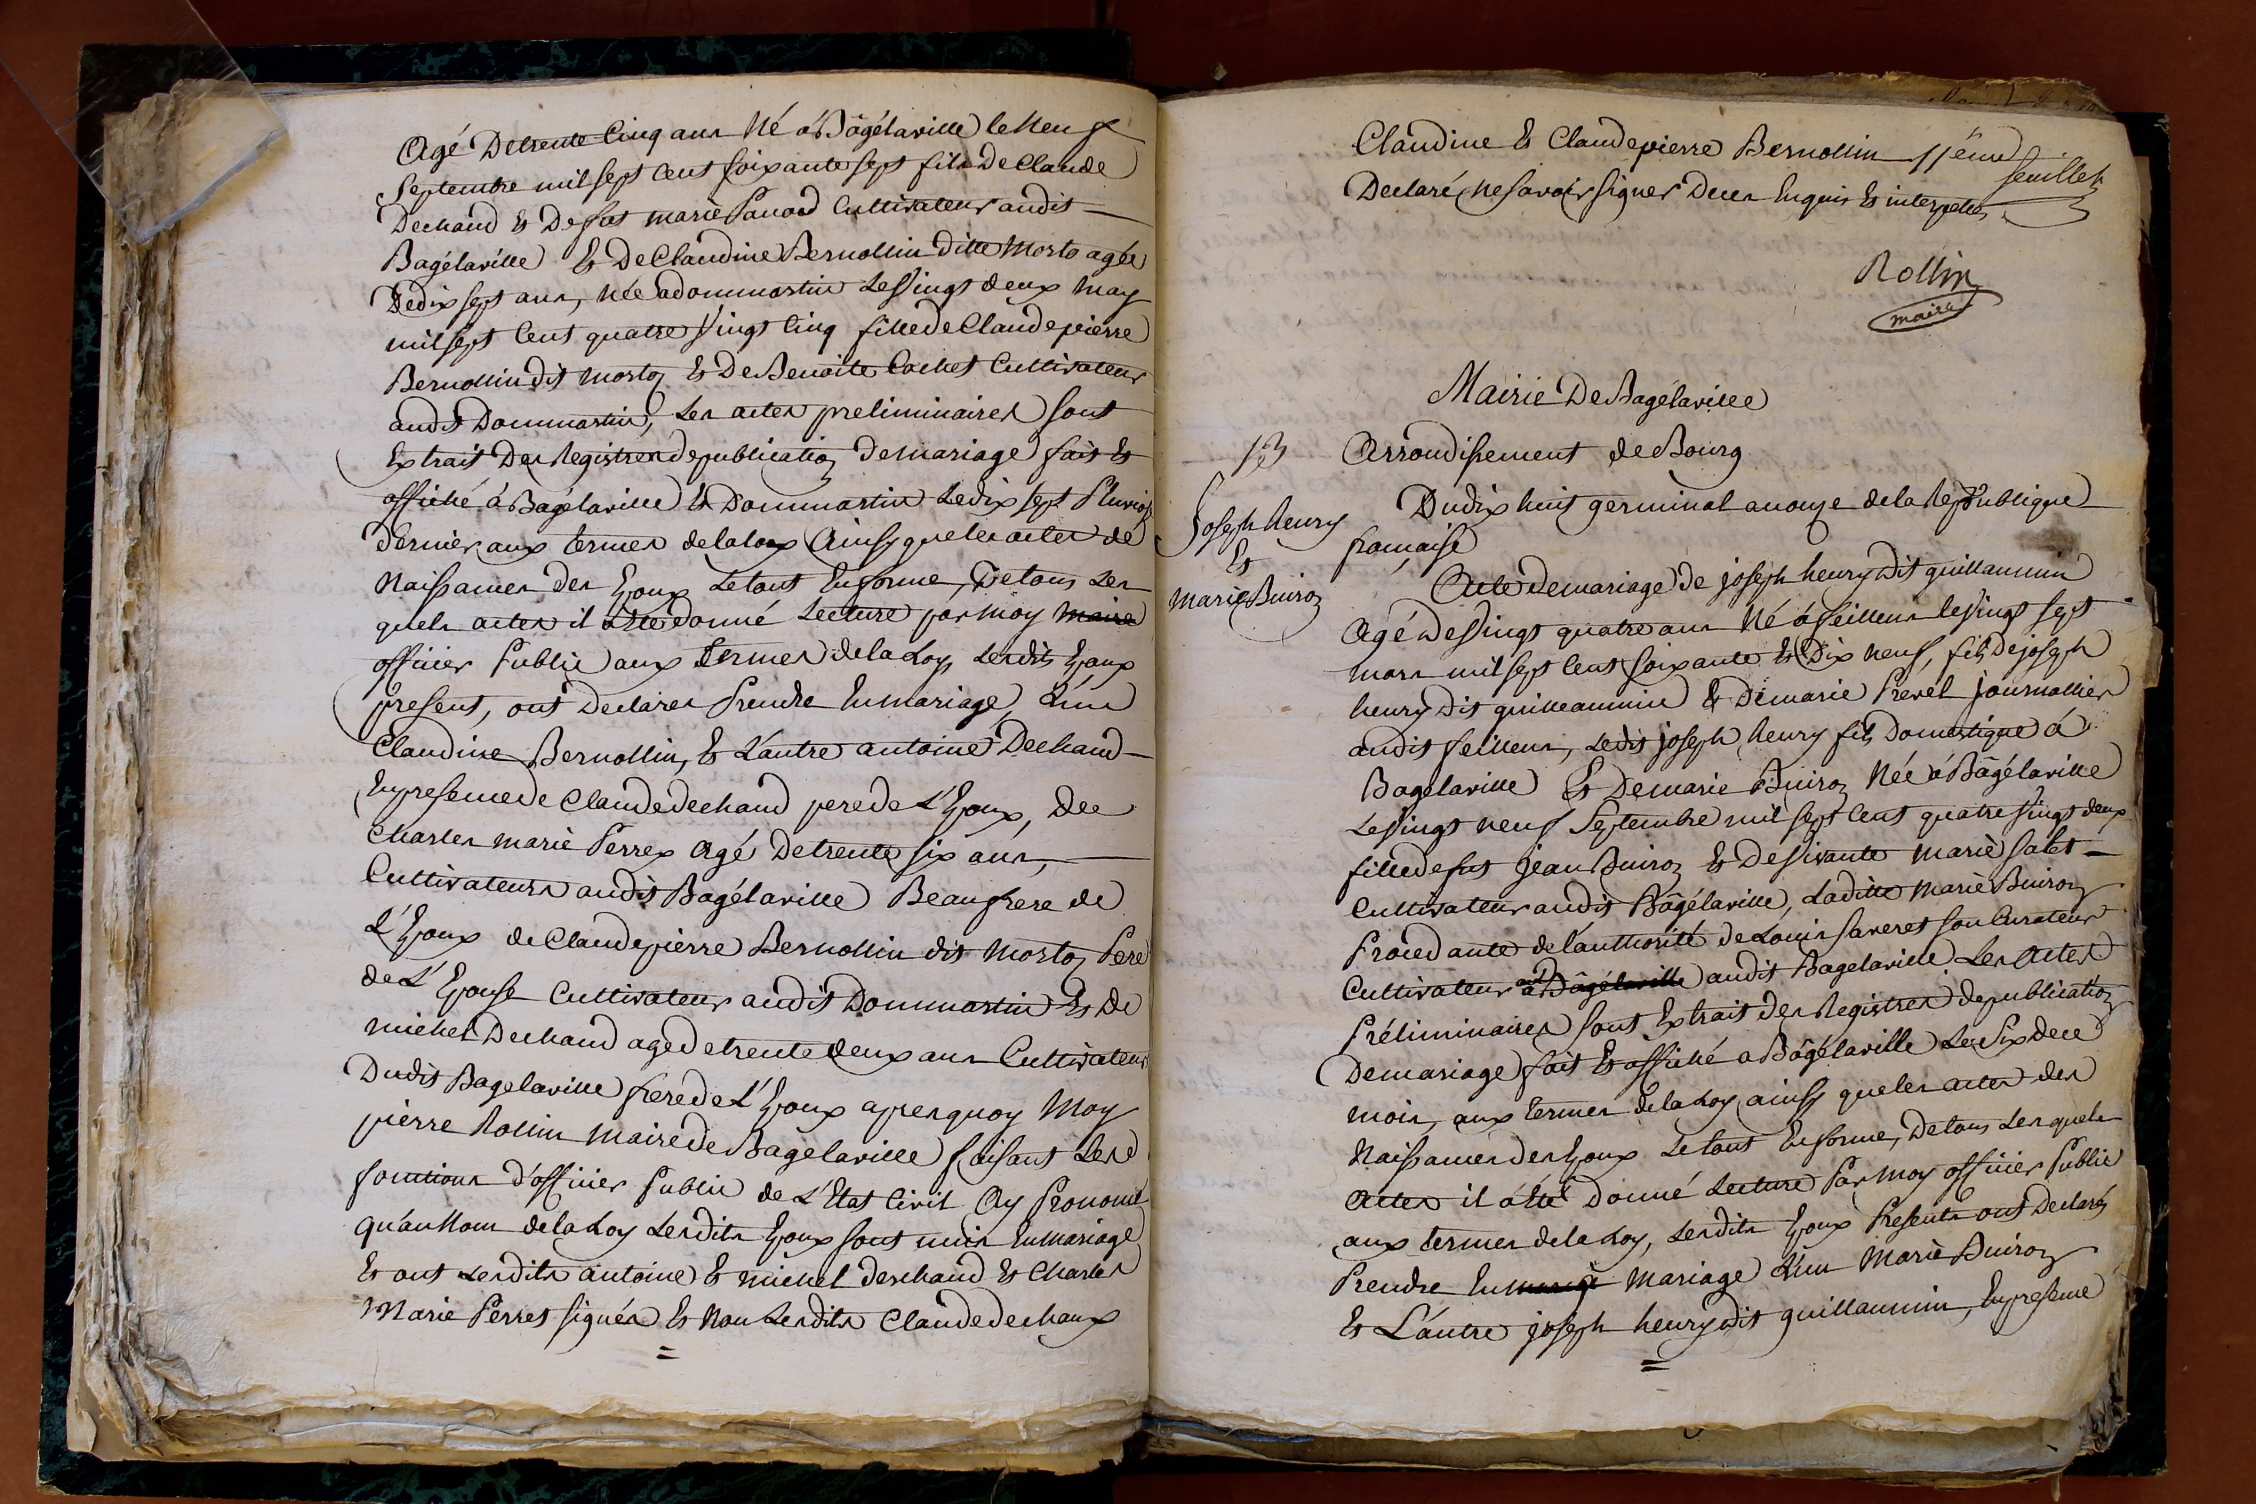 Agé De trente Cinq ans Né á Bâgélaville le Neuf
Septembre mil sept Cent soixante sept fils De Claude
Dechaud Et De fut marie Panaod Cultivateur audit
Bagélaville Et De Claudine Bernollin ditte Morto agée
De dix sept ans, Née a dommartin Le Vingt deux May
mil sept Cent quatre Vingt Cinq fille de Claude pierre
Bernollin dit morto Et De Benoite Cochet Cultivateur
audit Dommartin, Les actes preliminaires sont
Extrait Des Registres de publication de mariage fait Et
affiché á Bagélaville Et Dommartin Le dix sept Pluviose
dernier aux termes de la Loy Ainsy que les actes de
Naissances des Epoux Le tout En forme, De tous Les
quels actes il a Eté donné Lecture par moy maire
officier Public aux termes de la Loy, Lesdits Epoux
present, ont Declarer Prendre En mariage, L'un
Claudine Bernollin, Et L'autre antoine Dechaud
En presence de Claude dechaud pere de L'Epoux, De
Charles marie Perrex Agé De trente six ans,
Cultivateurs audit Bagélaville Beaufrere de
L'Epoux de Claude pierre Bernollin dit Morto Pere
de L'Epouse Cultivateur audit Dommartin Et De
michel Dechaud age de trente deux ans Cultivateur
Dudit Bagelaville frere de L'Epoux apres quoy Moy
pierre Rollin maire de Bagélaville faisant Les
fonctions d'officier Public de L'Etat Civil Ay Prononcé
qu'au Nom de la Loy Lesdits Epoux sont unis En mariage
Et ont Lesdits antoine Et michel dechaud Et Charles
Marie Perret signés Et Non Lesdits Claude dechaux
=
Claudine Et Claude pierre Bernollin 11éme feuillet
Declaré Ne savoir signer De ce Enquis Et interpellés
Rollin
maire
Mairie De Bagélaville
13
Arrondissement de Bourg
Joseph henry
Et
marie Buiron
Du dix huit germinal an onze de la République
française
Acte de mariage de joseph henry dit guillaumin
Agé de Vingt quatre ans Né á feillens le Vingt sept
mars mil sept Cent soixante Et Dix neuf, fils De joseph
henry dit guilleaumin Et De marie Prevel journallier
audit feillens, Ledit joseph henry fils Domestique á
Bagélaville Et De marie Buiron Née á Bâgélaville
Le Vingt neuf Septembre mil sept Cent quatre Vingt deux
fille de fut Jean Buiron Et De Vivante marie salet
Cultivateur audit Bâgélaville, Laditte marie Buiron
Procedante de l'authorité de Louis faveret son Curateur
Cultivateur á Bâgélaville audit Bagelaville Les Actes
Préliminaires sont Extrait des Registres de publication
De mariage fait Et affiché a Bâgélaville Le Six de ce
mois, aux termes de la Loy ainsy que les actes des
Naissances des Epoux Le tout En forme, De tous Les quels
Actes il á Eté Donné Lecture Par moy officier Public
aux termes de la Loy, Lesdits Epoux Presents ont Declarés
Prendre En mariage L'un Marie Buiron
Et L'autre joseph henry dit guillaumin, En presence
=